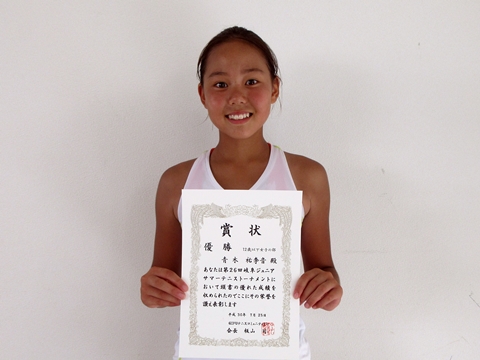 賞状
優勝
青木 祐季音 殿
あなたは第26回岐阜ジュニア
サマーテニストーナメントに
おいて頭書の優れた成績を
収められたのでここにその栄誉を
讃え表彰します
平成 30年 7月 25日
会長 板山